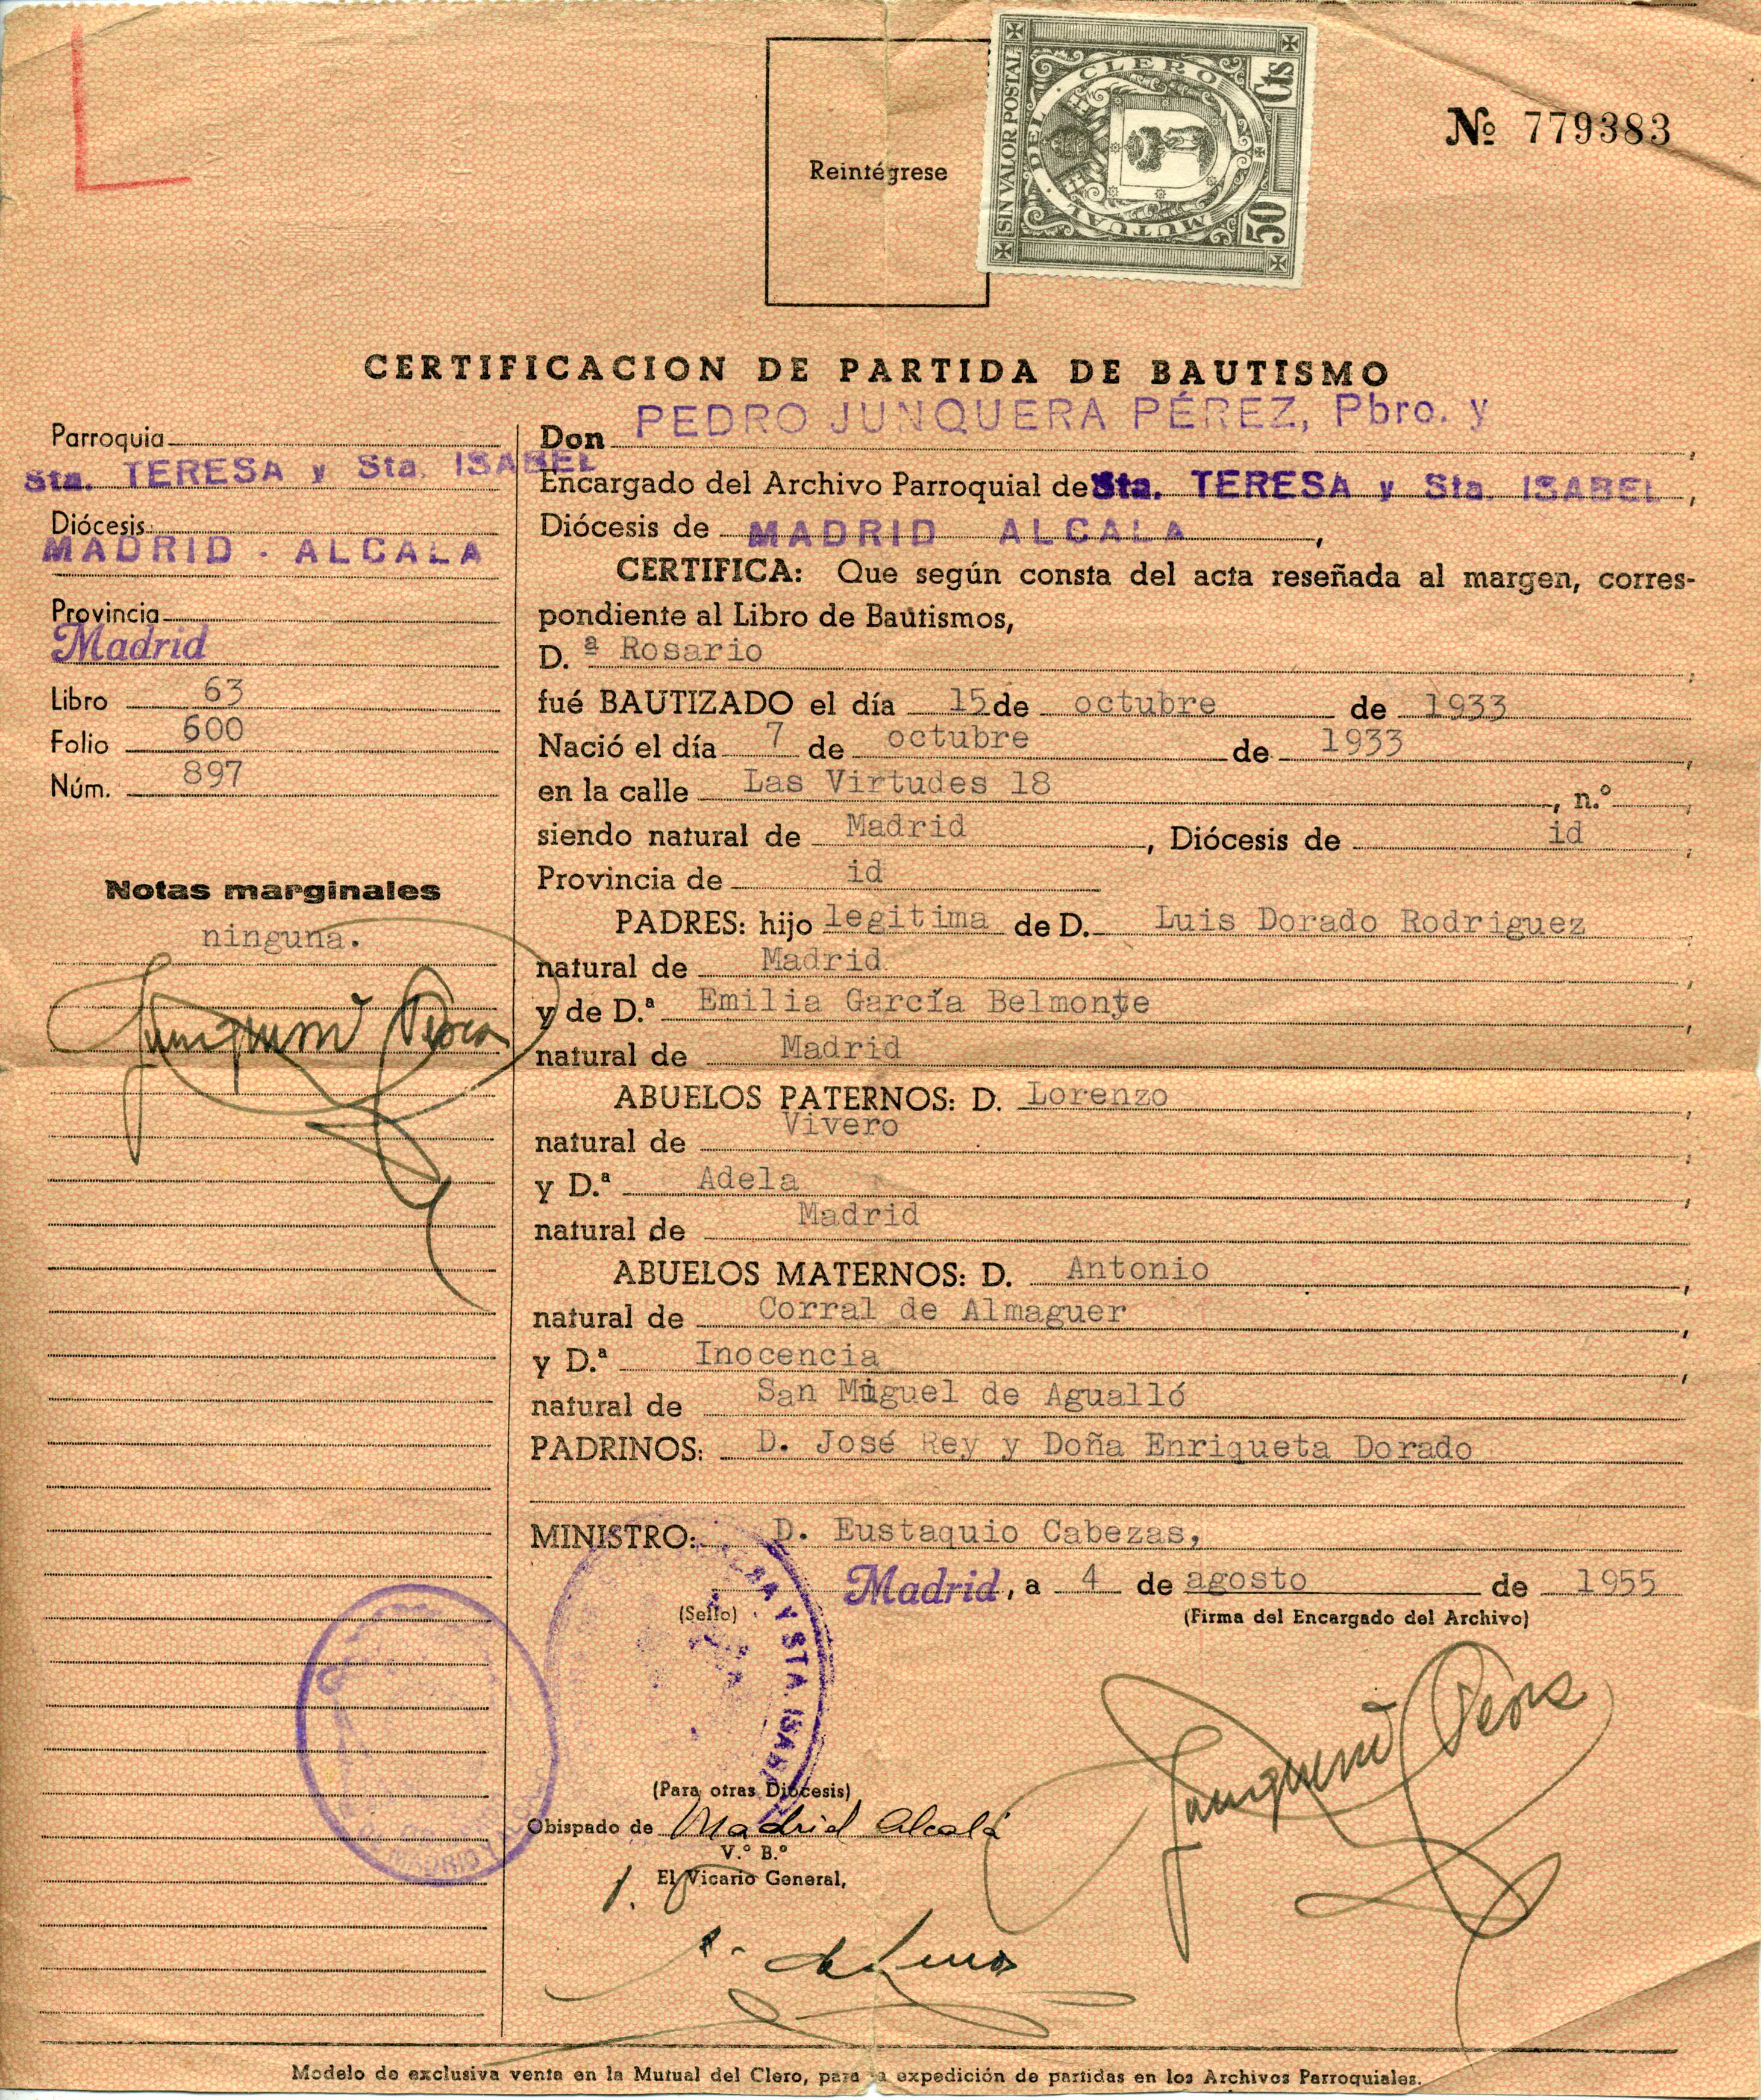 Reintégrese
SIN VALOR POSTAL
MUTUAL DEL CLERO
50 Cts
Nº 779383
CERTIFICACION DE PARTIDA DE BAUTISMO
Parroquia
Sta. TERESA y Sta. ISABEL
Diócesis
MADRID - ALCALA
Provincia
Madrid
Libro 63
Folio 600
Núm. 897
Notas marginales
ninguna.
Don PEDRO JUNQUERA PÉREZ, Pbro. y,
Encargado del Archivo Parroquial de Sta. TERESA y Sta. ISABEL,
Diócesis de MADRID ALCALA,
CERTIFICA: Que según consta del acta reseñada al margen, corres-
pondiente al Libro de Bautismos,
D. ª Rosario,
fué BAUTIZADO el día 15 de octubre de 1933
Nació el día 7 de octubre de 1933,
en la calle Las Virtudes 18, n.º,
siendo natural de Madrid, Diócesis de id,
Provincia de id
PADRES: hijo legitima de D. Luis Dorado Rodriguez,
natural de Madrid,
y de D.ª Emilia García Belmonte,
natural de Madrid
ABUELOS PATERNOS: D. Lorenzo,
natural de Vivero,
y D.ª Adela,
natural de Madrid
ABUELOS MATERNOS: D. Antonio,
natural de Corral de Almaguer,
y D.ª Inocencia,
natural de San Miguel de Agualló
PADRINOS: D. José Rey y Doña Enriqueta Dorado
MINISTRO: D. Eustaquio Cabezas,
Madrid, a 4 de agosto de 1955
(Sello)
(Firma del Encargado del Archivo)
Y STA. ISAB
DE MADRID
(Para otras Diócesis)
Obispado de Madrid Alcalá
V.º B.º
El Vicario General,
Modelo de exclusiva venta en la Mutual del Clero, para la expedición de partidas en los Archivos Parroquiales.